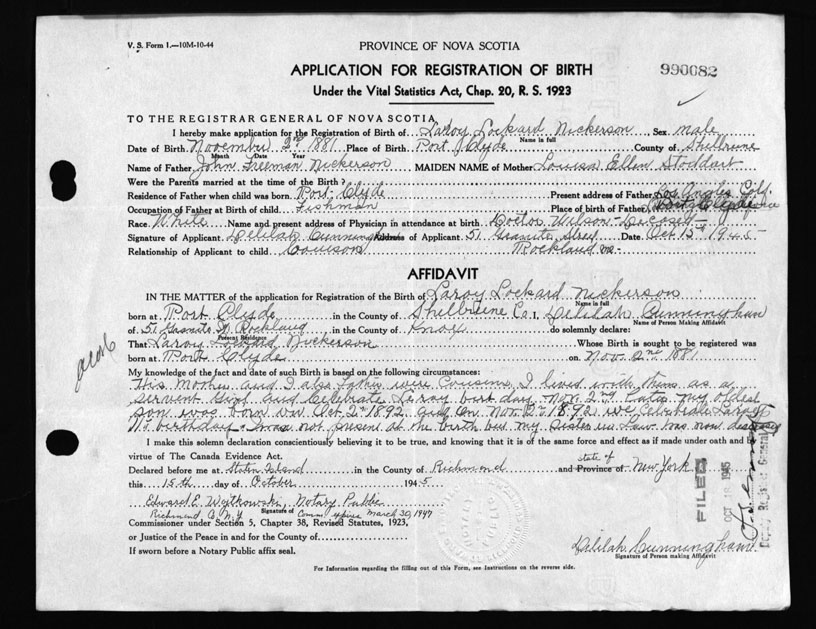 V. S. Form 1.—10M-10-44
PROVINCE OF NOVA SCOTIA
APPLICATION FOR REGISTRATION OF BIRTH
990082
Under the Vital Statistics Act, Chap. 20, R. S. 1923
TO THE REGISTRAR GENERAL OF NOVA SCOTIA
I hereby make application for the Registration of Birth of Laroy Lockard Nickerson, Sex male
Name in full
Date of Birth November 2nd 1881 Place of Birth Port Clyde County of Shelburne
Month Date Year
Name of Father John Freeman Nickerson MAIDEN NAME of Mother Louisa Ellen Stoddart
Were the Parents married at the time of the Birth?
Residence of Father when child was born. Port Clyde Present address of Father Los Angles Calif.
Occupation of Father at Birth of child. Fishman Place of birth of Father Port Clyde
Race. White Name and present address of Physician in attendance at birth. Doctor Wilson - Deceased
Signature of Applicant. Delilah Cunningham Address of Applicant. 51 Granite Street Date. Oct 15th 1945
Relationship of Applicant to child. Cousin Rockland Me.
AFFIDAVIT
IN THE MATTER of the application for Registration of the Birth of Laroy Lockard Nickerson
Name in full
born at Port Clyde in the County of Shelburne Co. I, Delilah Cunningham
Name of Person Making Affidavit
of 51 Granite St Rockland in the County of Knox do solemnly declare:
Present Residence
That Laroy Lockard Nickerson Whose Birth is sought to be registered was
born at Port Clyde on Nov. 2nd 1881
My knowledge of the fact and date of such Birth is based on the following circumstances:
His Mother and I also father were Cousins I lived with them as a
servent Girl and Celebrate Leroy birth day Nov. 2nd my oldest
son was born on Oct 2nd 1892 and on Nov. 2nd 1892 we Celebrate
11th birthday. I was not present at the birth but my Sister in Law was now
I make this solemn declaration conscientiously believing it to be true, and knowing that it is of the same force and effect as if made under oath and by
virtue of The Canada Evidence Act.
Declared before me at Staten Island in the County of Richmond state of and Province of New York
this 15th day of October 1945
Edward E. Wojtkowski, Notary Public
Richmond Co. N.Y. Comm expires March 30, 1947
Signature of
Commissioner under Section 5, Chapter 38, Revised Statutes, 1923,
or Justice of the Peace in and for the County of
If sworn before a Notary Public affix seal.
Delilah Cunningham
Signature of Person making Affidavit
For Information regarding the filling out of this Form, see Instructions on the reverse side.
FILED
OCT 1945
Deputy Registrar General